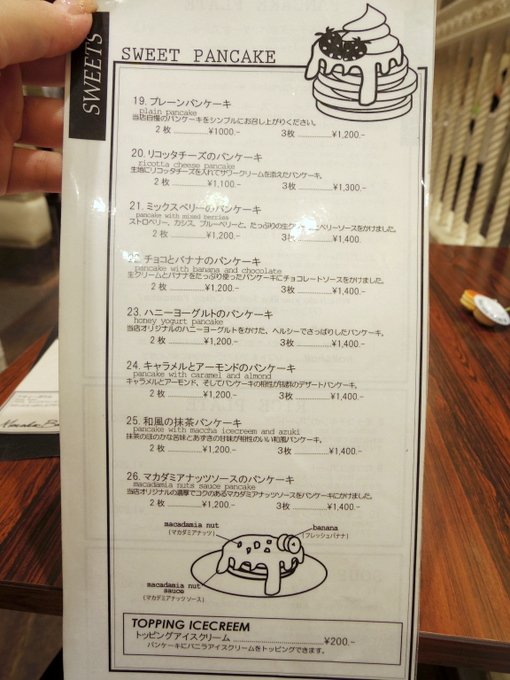 SWEETS
SWEET PANCAKE
19. プレーンパンケーキ
plain pancake
当店自慢のパンケーキをシンプルにお召し上がりください。
2枚 ............ ¥1000.- 3枚 ............ ¥1,200.-
20. リコッタチーズのパンケーキ
ricotta cheese pancake
生地にリコッタチーズを入れてサワークリームを添えたパンケーキ。
2枚 ............ ¥1,100.- 3枚 ............ ¥1,300.-
21. ミックスベリーのパンケーキ
pancake with mixed berries
ストロベリー、カシス、ブルーベリーと、たっぷりの生ク ベリーソースをかけました。
2枚 ............ ¥1,200.- ............ ¥1,400.
チョコとバナナのパンケーキ
pancake with banana and chocolate
生クリームとバナナをたっぷり使ったパンケーキにチョコレートソースをかけました。
2枚 ............ ¥1,200.- 3枚 ............ ¥1,400.-
23. ハニーヨーグルトのパンケーキ
honey yogurt pancake
当店オリジナルのハニーヨーグルトをかけた、ヘルシーでさっぱりしたパンケーキ。
2枚 ............ ¥1,200.- 3枚 ............ ¥1,400.-
24. キャラメルとアーモンドのパンケーキ
pancake with caramel and almond
キャラメルとアーモンド、そしてパンケーキの相性が抜群のデザートパンケーキ。
2枚 ............ ¥1,200.- 3枚 ............ ¥1,400.-
25. 和風の抹茶パンケーキ
pancake with maccha icecreem and azuki
抹茶のほのかな苦味とあずきの甘味が相性のいい和風パンケーキ。
2枚 ............ ¥1,200.- 3枚 ............ ¥1,400.-
26. マカダミアナッツソースのパンケーキ
macadamia nuts sauce pancake
当店オリジナルの濃厚でコクのあるマカダミアナッツソースをパンケーキにかけました。
2枚 ............ ¥1,200.- 3枚 ............ ¥1,400.-
macadamia nut
(マカダミアナッツ)
banana
(フレッシュバナナ)
macadamia nut
sauce
(マカダミアナッツソース)
TOPPING ICECREEM
トッピングアイスクリーム ............ ¥200.-
パンケーキにバニラアイスクリームをトッピングできます。